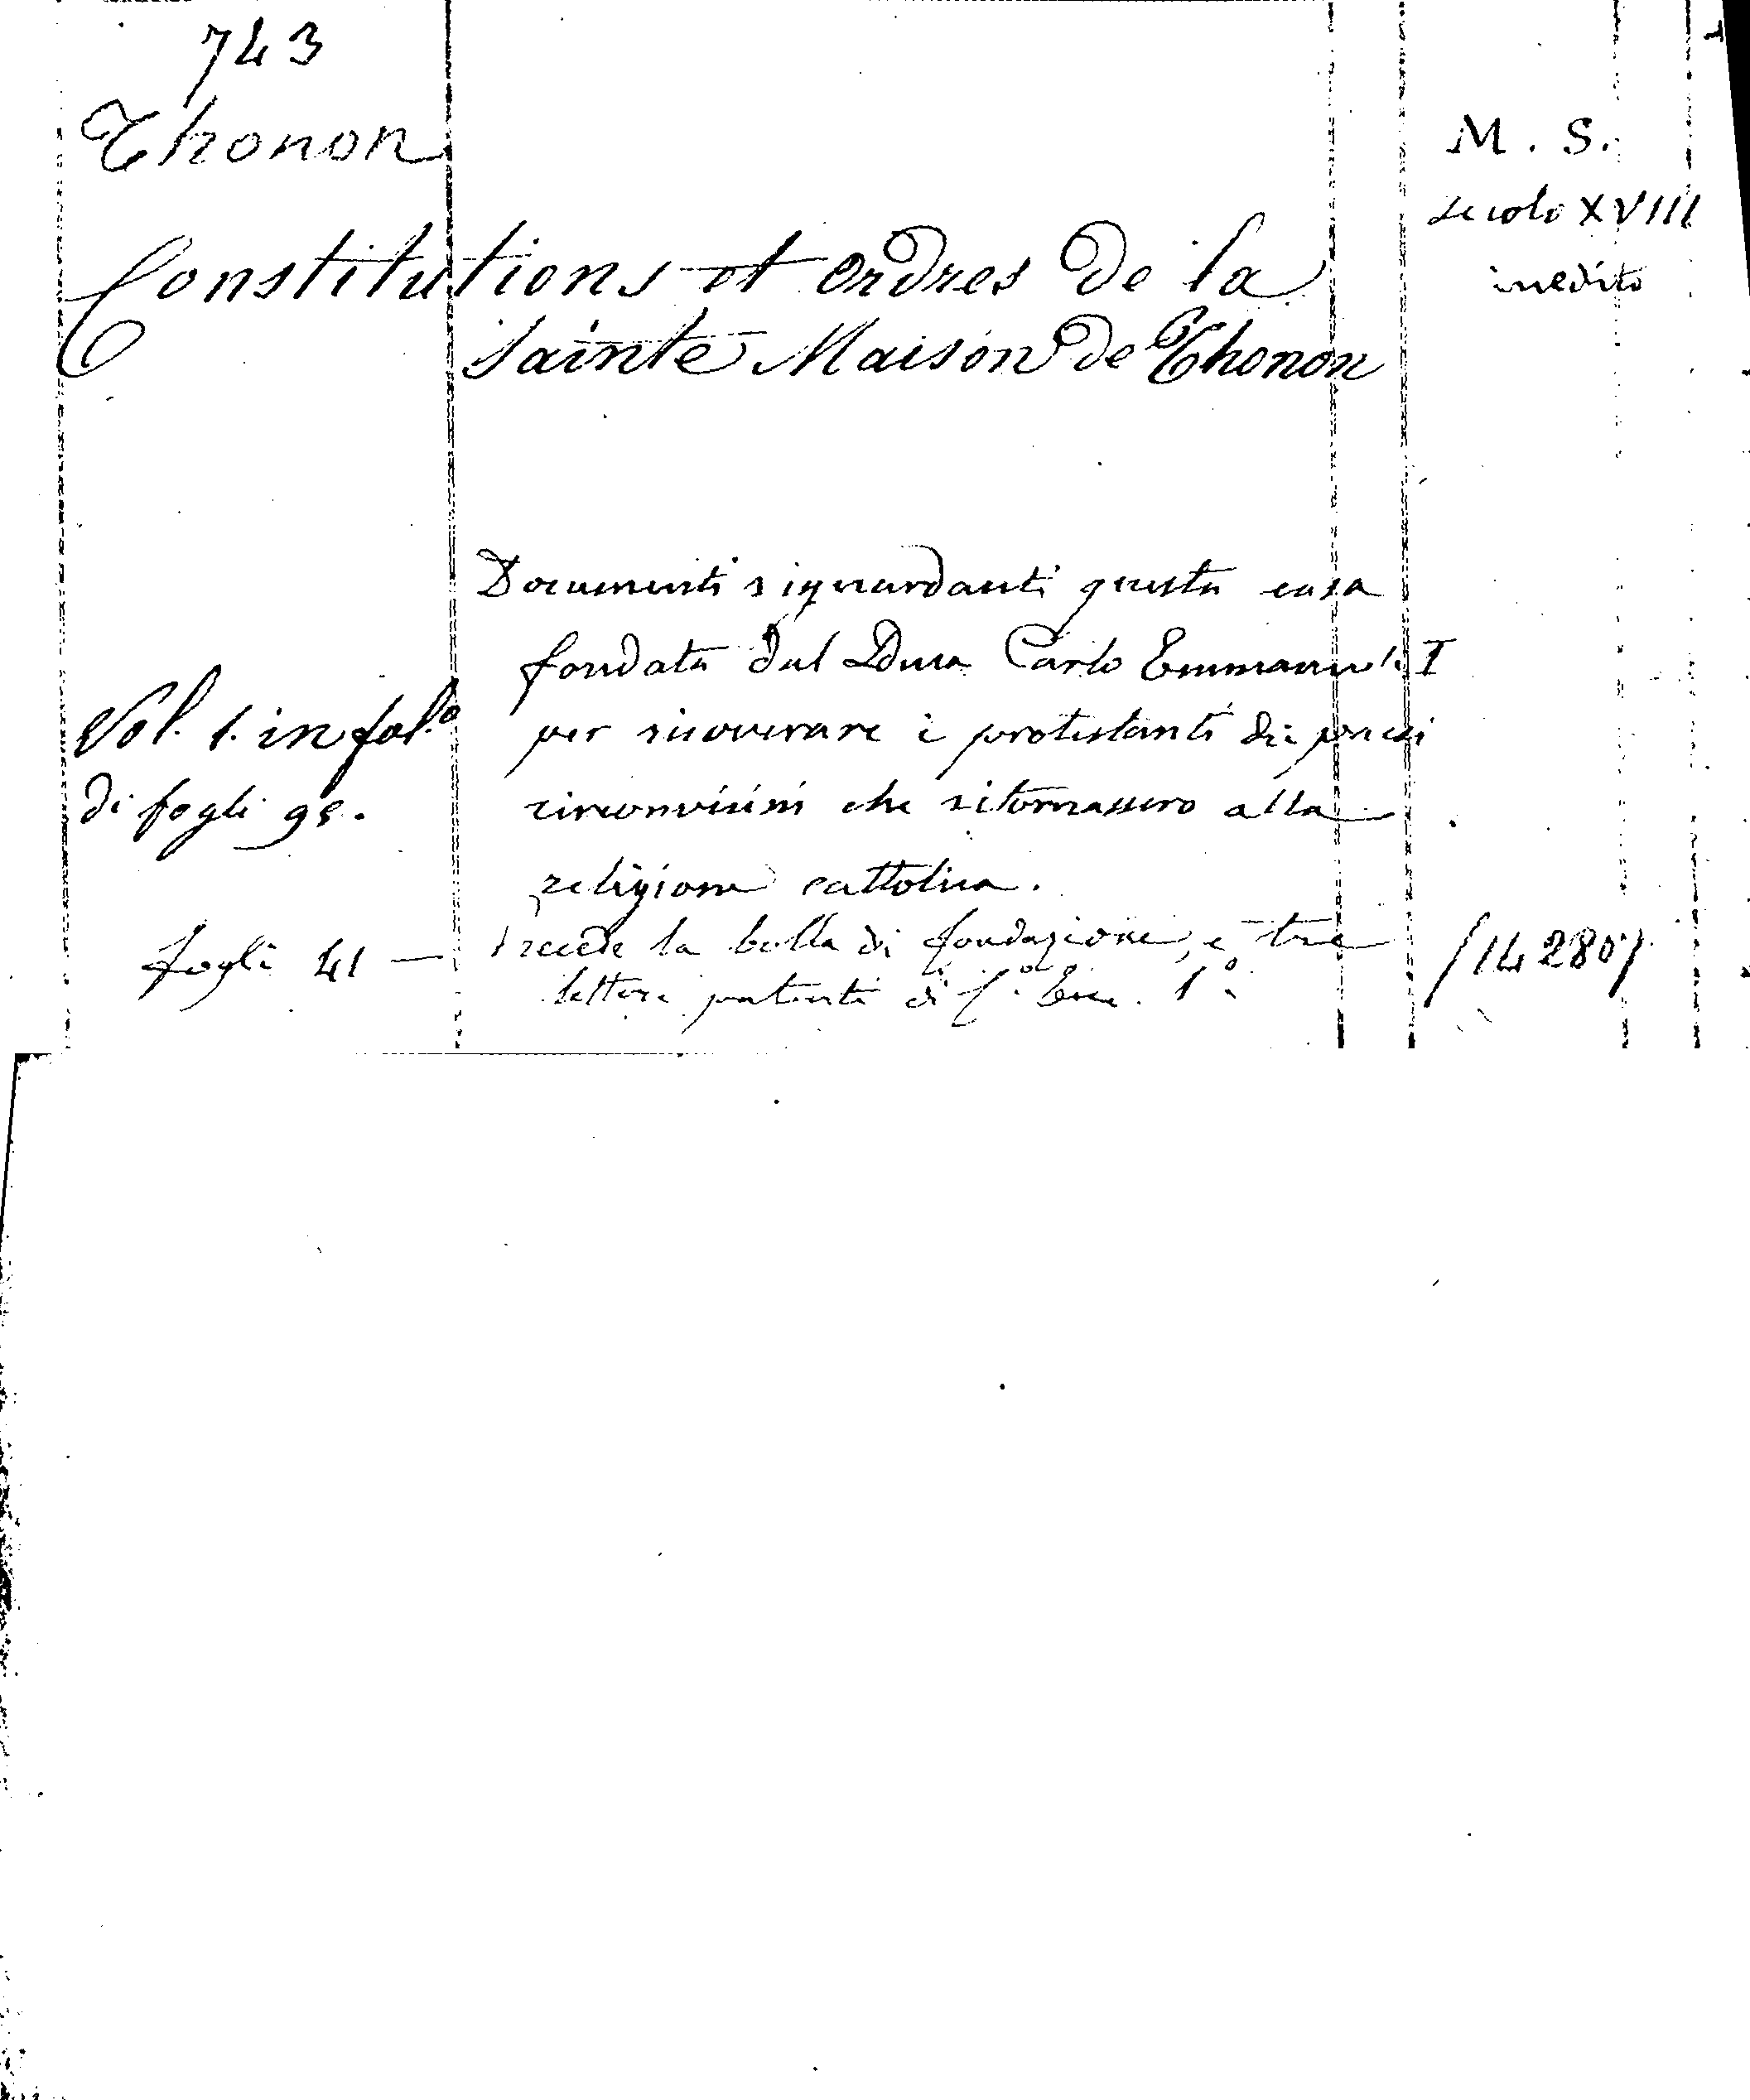 743
Thonon
M. S.
secolo XVIII
inedito
Constitutions et ordres de la
Sainte Maison de Thonon
Documenti riguardanti questa casa
fondata dal Duca Carlo Emmanuele I
per ricoverare i protestanti dei paesi
circonvicini che ritornassero alla
religione cattolica.
Vol. 1. in fol.º
di fogli 98.
fogli 41 — Precede la bolla di fondazione, e tre
lettere patenti di C.º Em. 1º.
/14280/